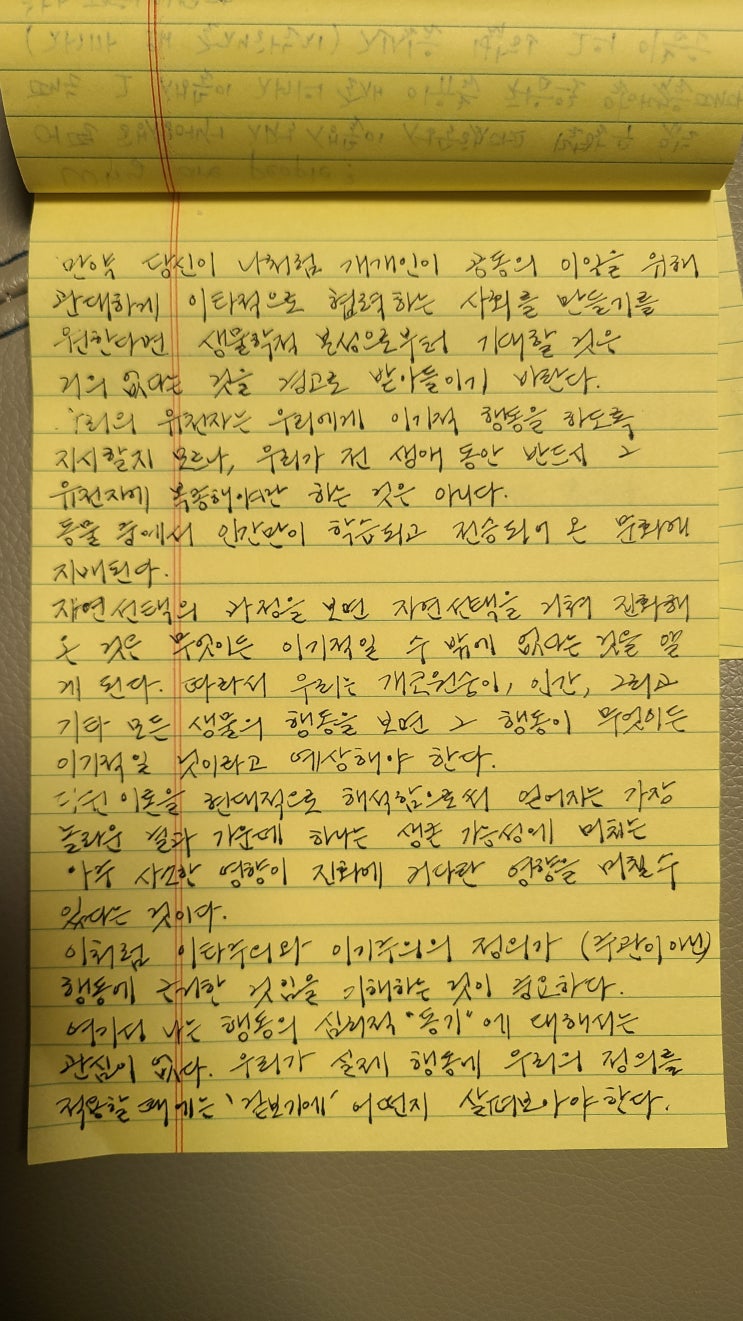 만약 당신이 나처럼 개개인이 공동의 이익을 위해
관대하게 이타적으로 협력하는 사회를 만들기를
원한다면 생물학적 본성으로부터 기대할 것은
거의 없다는 것을 경고로 받아들이기 바란다.
우리의 유전자는 우리에게 이기적 행동을 하도록
지시할지 모르나, 우리가 전 생애 동안 반드시 그
유전자에 복종해야만 하는 것은 아니다.
동물 중에서 인간만이 학습되고 전승되어 온 문화에
지배된다.
자연선택의 과정을 보면 자연선택을 거쳐 진화해
온 것은 무엇이든 이기적일 수 밖에 없다는 것을 알
게 된다. 따라서 우리는 개코원숭이, 인간, 그리고
기타 모든 생물의 행동을 보면 그 행동이 무엇이든
이기적일 것이라고 예상해야 한다.
다윈 이론을 현대적으로 해석함으로써 얻어지는 가장
놀라운 결과 가운데 하나는 생존 가능성에 미치는
아주 사소한 영향이 진화에 커다란 영향을 미칠 수
있다는 것이다.
이처럼 이타주의와 이기주의의 정의가 (주관이 아닌)
행동에 근거한 것임을 이해하는 것이 중요하다.
여기서 나는 행동의 심리적 "동기"에 대해서는
관심이 없다. 우리가 실제 행동에 우리의 정의를
적용할 때에는 '겉보기에' 어떤지 살펴보아야 한다.